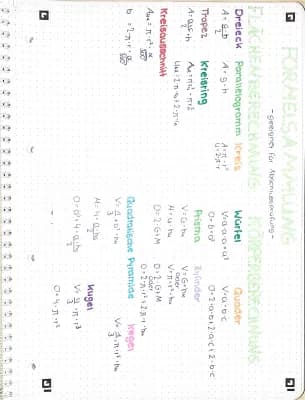 FORMELSAMMLUNG
- geeignet für Abschlussprüfung -
FLÄCHENBERECHNUNG
Dreieck
A = g·h
2
Parallelogramm
A = g·h
Kreis
A = π·r²
U = 2·π·r
Trapez
A = a+c·h
2
Kreisring
Kreisausschnitt
b = 2·π·r·α
360°
KÖRPERBERECHNUNG
Würfel
V = a·a·a = a³
O = 6·a²
Quader
V = a·b·c
O = 2·a·b+2·a·c+2·b·c
Prisma
V = G·hk
M = u·hk
O = 2·G+M
Zylinder
V = G·hk
oder
V = π·r²·hk
O = 2·G+M
oder
O = 2·π·r²+2·π·r·hk
Quadratische Pyramide
V = 1/3·a²·hk
Kegel
V = 1/3·π·r²·hk
Kugel
V = 4/3·π·r³
O = 4·π·r²